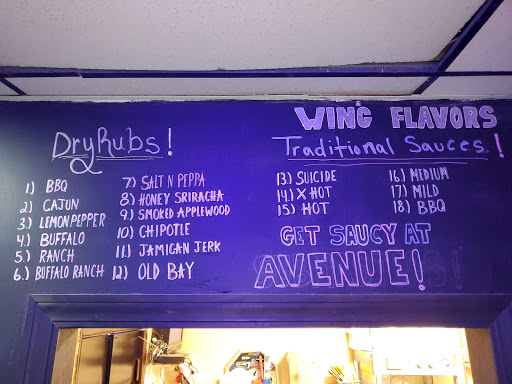 WING FLAVORS
DryRubs!
1) BBQ
2) CAJUN
3.) LEMON PEPPER
4.) BUFFALO
5.) RANCH
6.) BUFFALO RANCH
7) SALT N PEPPA
8) HONEY SRIRACHA
9) SMOKED APPLEWOOD
10) CHIPOTLE
11.) JAMICAN JERK
12) OLD BAY
Traditional Sauces!
13.) SUICIDE
14.) X HOT
15.) HOT
16.) MEDIUM
17.) MILD
18.) BBQ
GET SAUCY AT
AVENUE!